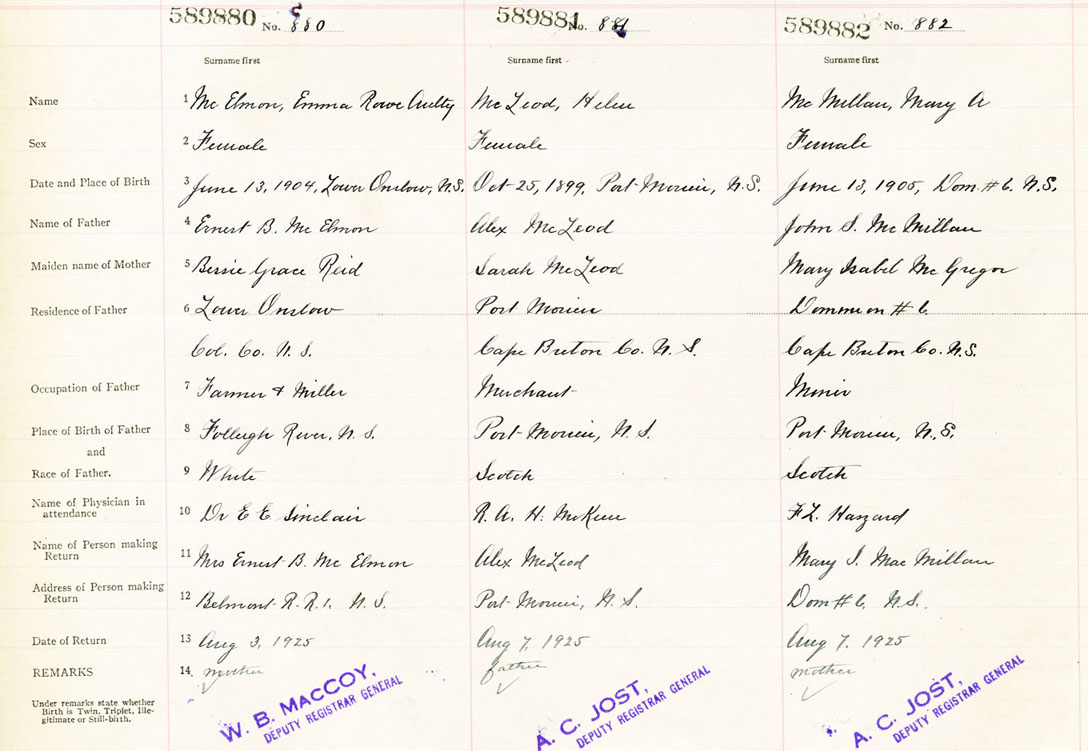 589880 No. 880 589881 No. 881 589882 No. 882
Surname first Surname first Surname first
Name 1 Mc Elmon, Emma Rowe Mc Leod, Helen Mc Millan, Mary A
Sex 2 Female Female Female
Date and Place of Birth 3 June 13, 1904, Lower Onslow, N.S. Oct 25, 1899, Port Morien, N.S. June 13, 1905, Dom. # 6. N.S.
Name of Father 4 Ernest B. Mc Elmon Alex McLeod John S. McMillan
Maiden name of Mother 5 Bessie Grace Reid Sarah McLeod Mary Isabel McGregor
Residence of Father 6 Lower Onslow Port Morien Dominion # 6.
Col. Co. N.S. Cape Breton Co. N.S. Cape Breton Co. N.S.
Occupation of Father 7 Farmer & Miller Merchant Miner
Place of Birth of Father 8 Folleigh River, N.S. Port Morien, N.S. Port Morien, N.S.
and
Race of Father. 9 White Scotch Scotch
Name of Physician in
attendance 10 Dr E E Sinclair R. A. H. McKeen F L. Haszard
Name of Person making
Return 11 Mrs Ernest B. Mc Elmon Alex McLeod Mary I. MacMillan
Address of Person making
Return 12 Belmont R.R.1. N.S. Port Morien, N.S. Dom # 6. N.S.
Date of Return 13 Aug 3, 1925 Aug 7, 1925 Aug 7. 1925
REMARKS 14 mother father mother
Under remarks state whether
Birth is Twin, Triplet, Ille-
gitimate or Still-birth.
W. B. MACCOY, A. C. JOST, A. C. JOST,
DEPUTY REGISTRAR GENERAL DEPUTY REGISTRAR GENERAL DEPUTY REGISTRAR GENERAL